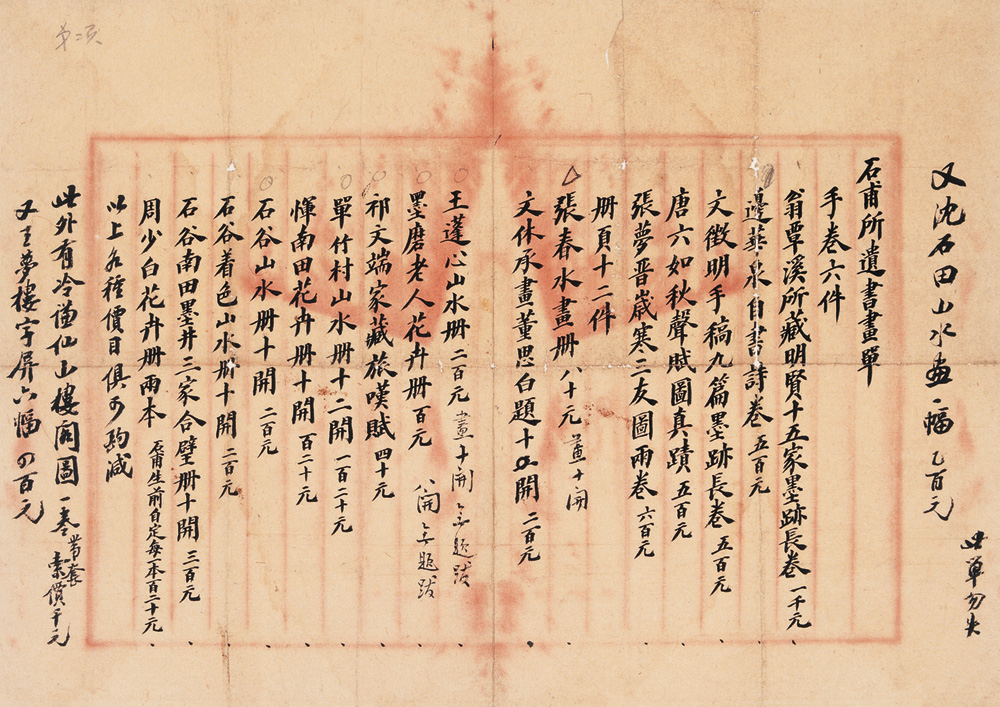 又沈石田山水畫一幅 乙百元
此單勿失
石甫所遺書畫單
手卷六件
翁覃溪所藏明賢十五家墨跡長卷 一千元
邊華泉自書詩卷 五百元
文徵明手稿九篇墨跡長卷 五百元
唐六如秋聲賦圖真蹟 五百元
張夢晋歲寒三友圖兩卷 六百元
册頁十二件
張春水畫册 八十元 畫十開
文休承畫董思白題十五開 二百元
王蓬心山水册 二百元 畫十開 無題跋
墨磨老人花卉册 百元 八開 無題跋
祁文端家藏旅嘆賦 四十元
單竹村山水册十二開 一百二十元
惲南田花卉册十開 百二十元
石谷山水册十開 二百元
石谷着色山水册十開 二百元
石谷南田墨井三家合璧册十開 三百元
周少白花卉册兩本 石甫生前自定每一本百二十元
以上各種價目俱可酌減
此外有冷謙仙山樓閣圖一卷 帶套 索價千元
又王夢樓字屏六幅 四百元
第二頁